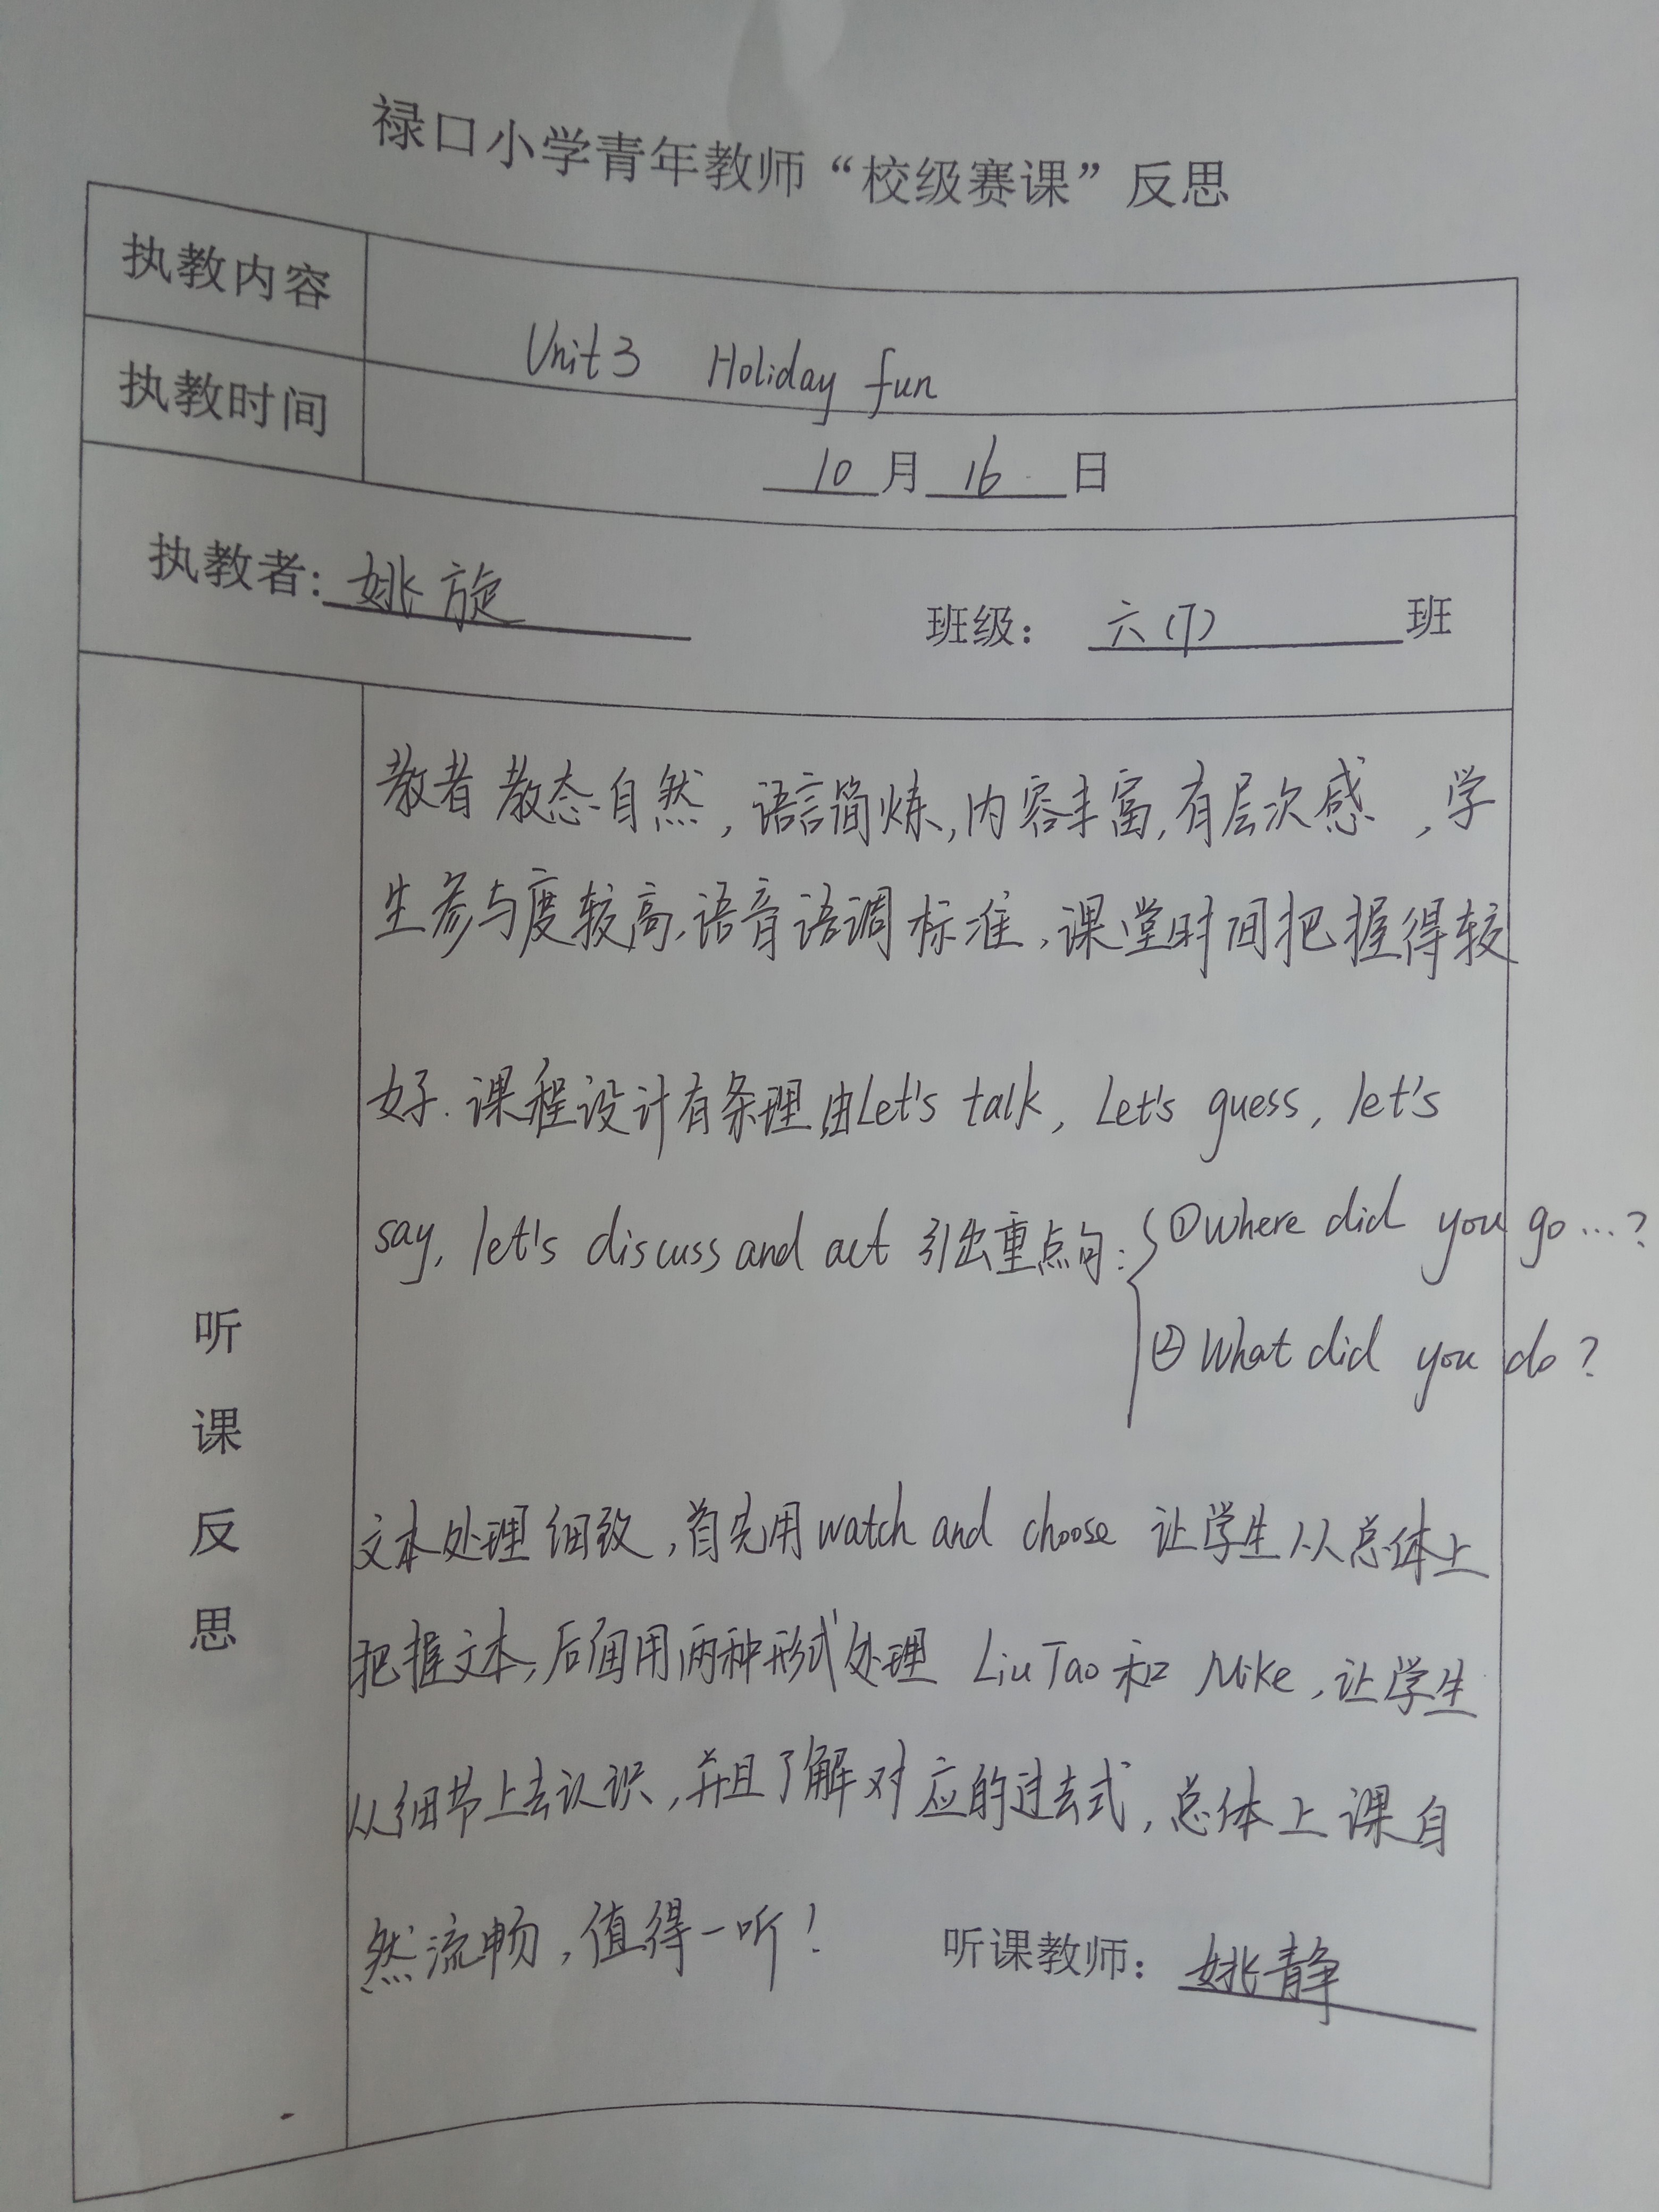 禄口小学青年教师“校级赛课”反思
执教内容
Unit 3 Holiday fun
执教时间
10月16日
执教者：姚旋 班级： 六(7) 班
听课反思
教者教态自然，语言简炼，内容丰富，有层次感，学
生参与度较高，语音语调标准，课堂时间把握得较
好. 课程设计有条理，由Let's talk, Let's guess, let's
say, let's discuss and act 引出重点句：①Where did you go…?
②What did you do?
文本处理细致，首先用watch and choose 让学生从总体上
把握文本，后面用两种形式处理 Liu Tao 和 Mike，让学生
从细节上去认识，并且了解对应的过去式，总体上课自
然流畅，值得一听！ 听课教师：姚静